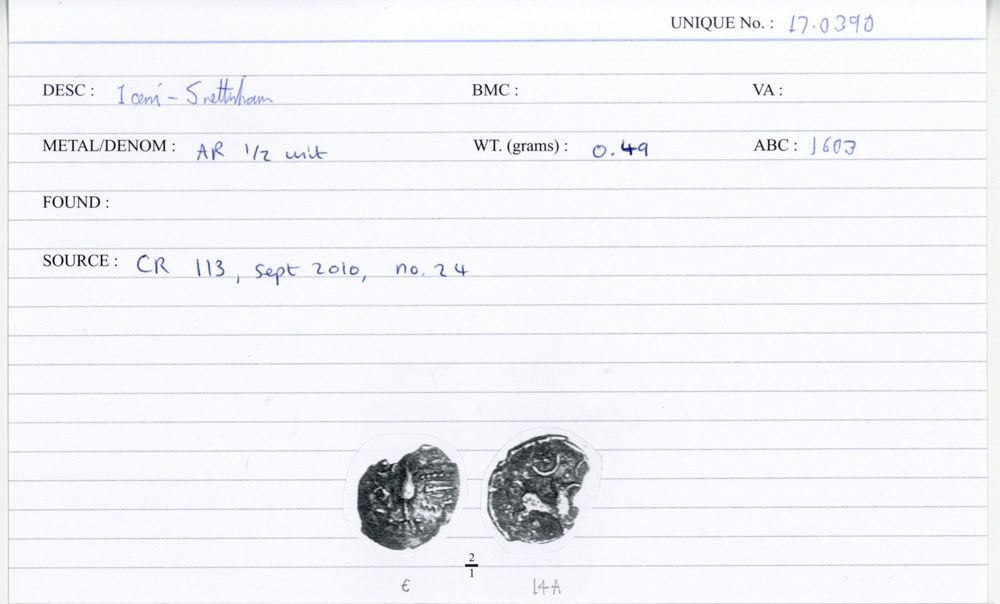 UNIQUE No. : 17.0390
DESC : Iceni - Snettisham BMC : VA :
METAL/DENOM : AR 1/2 unit WT. (grams) : 0.49 ABC : 1603
FOUND :
SOURCE : CR 113, Sept 2010, no. 24
2
1
€ 14A